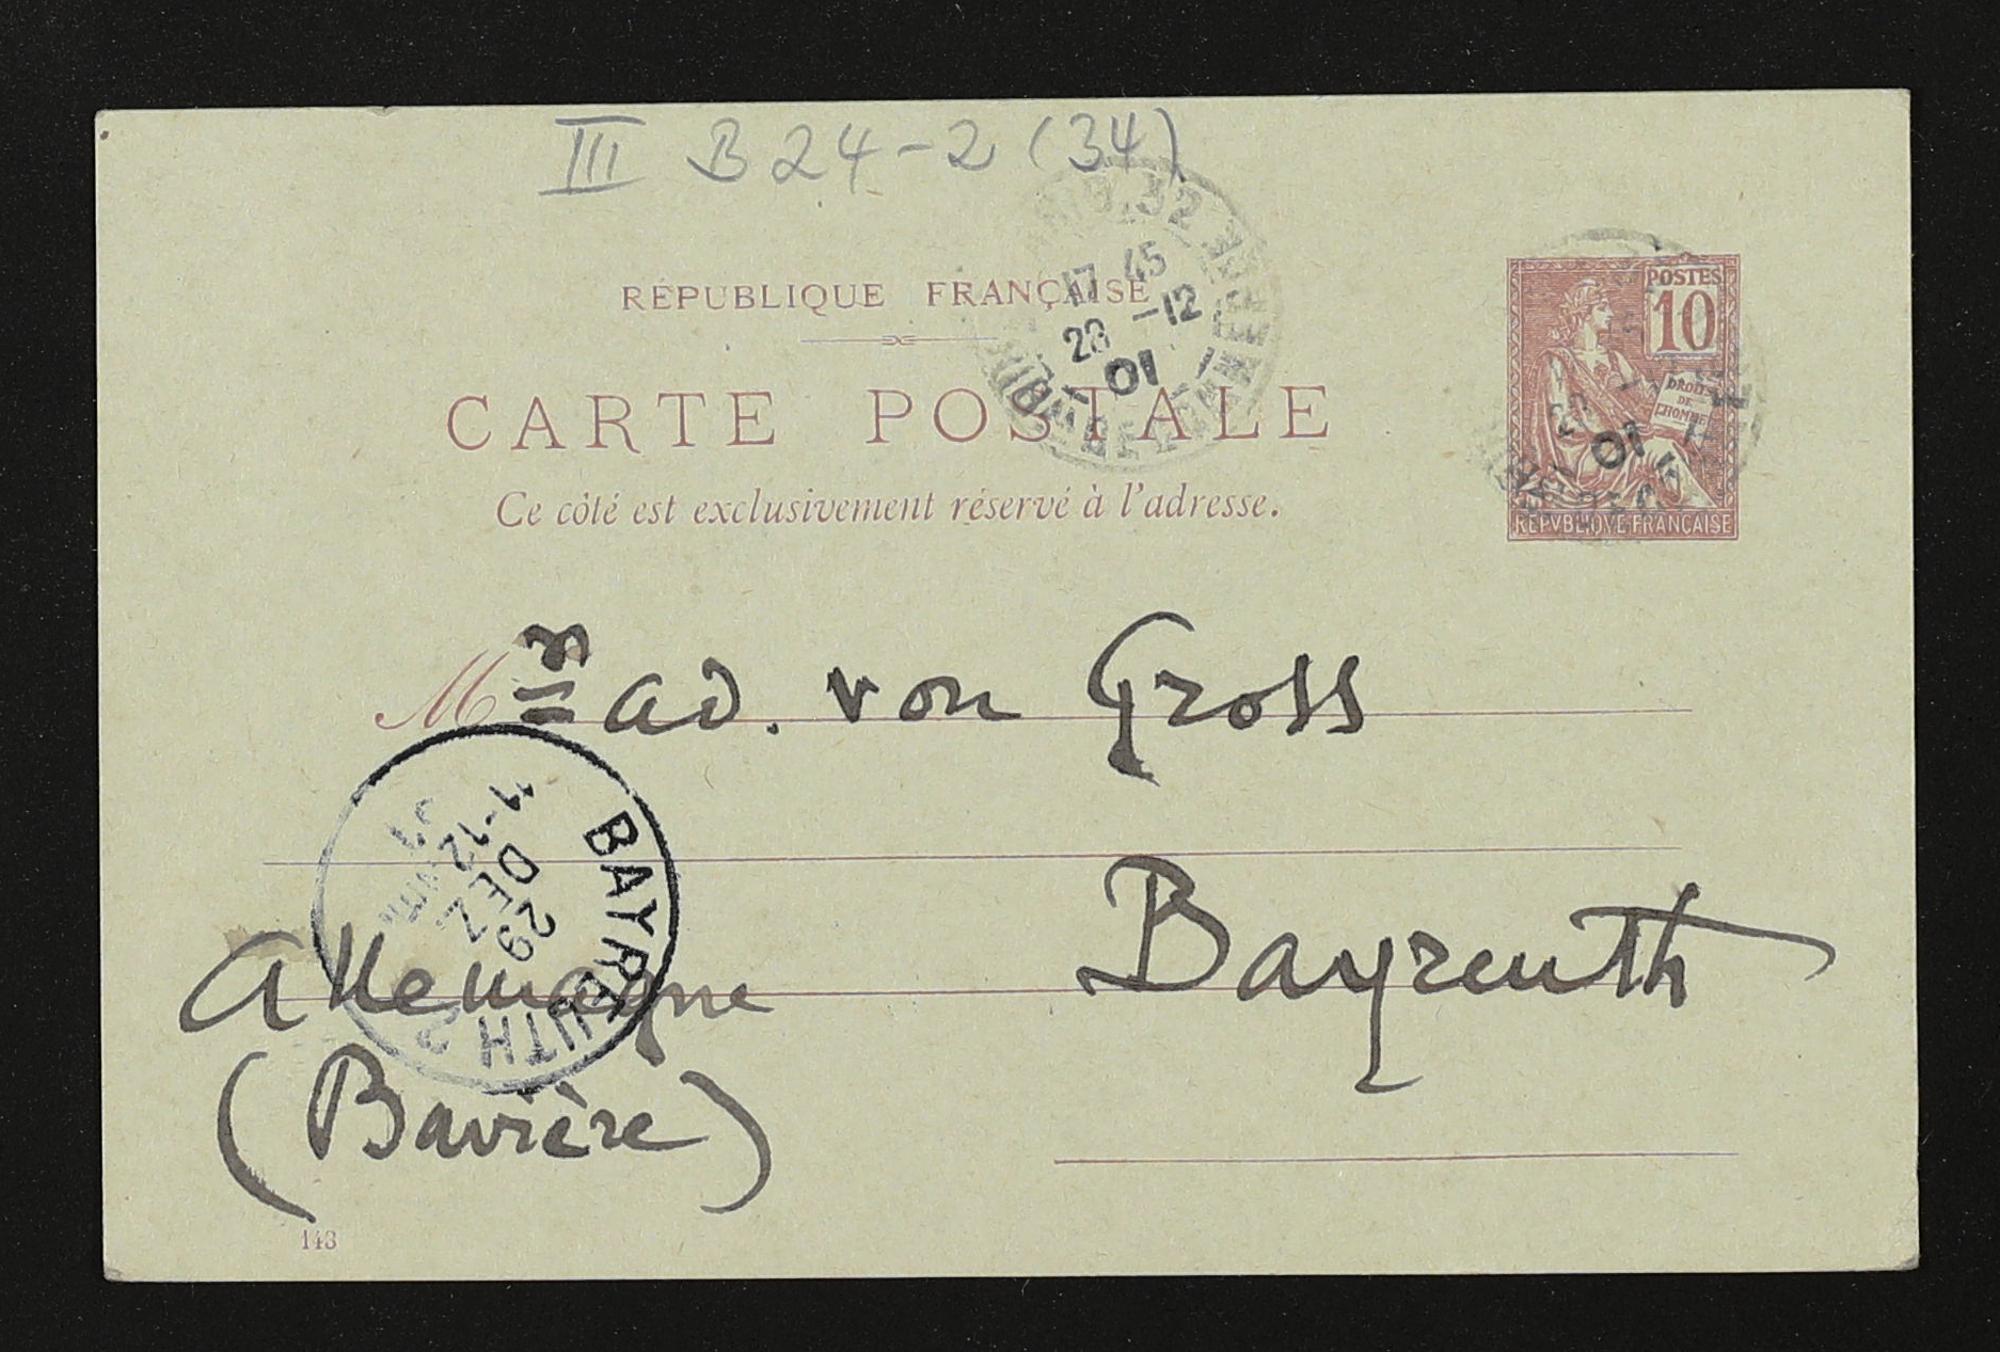 III B 24-2 (34)
RÉPUBLIQUE FRANÇAISE
17 45
28 -12
01
POSTES
10
DROITS
DE
L'HOMME
01
REPVBLIQVE FRANÇAISE
CARTE POSTALE
Ce côté est exclusivement réservé à l'adresse.
Mr ad. von Gross
BAYREUTH 2
29
DEZ
11-12
Bayreuth
Allemagne
(Bavière)
143